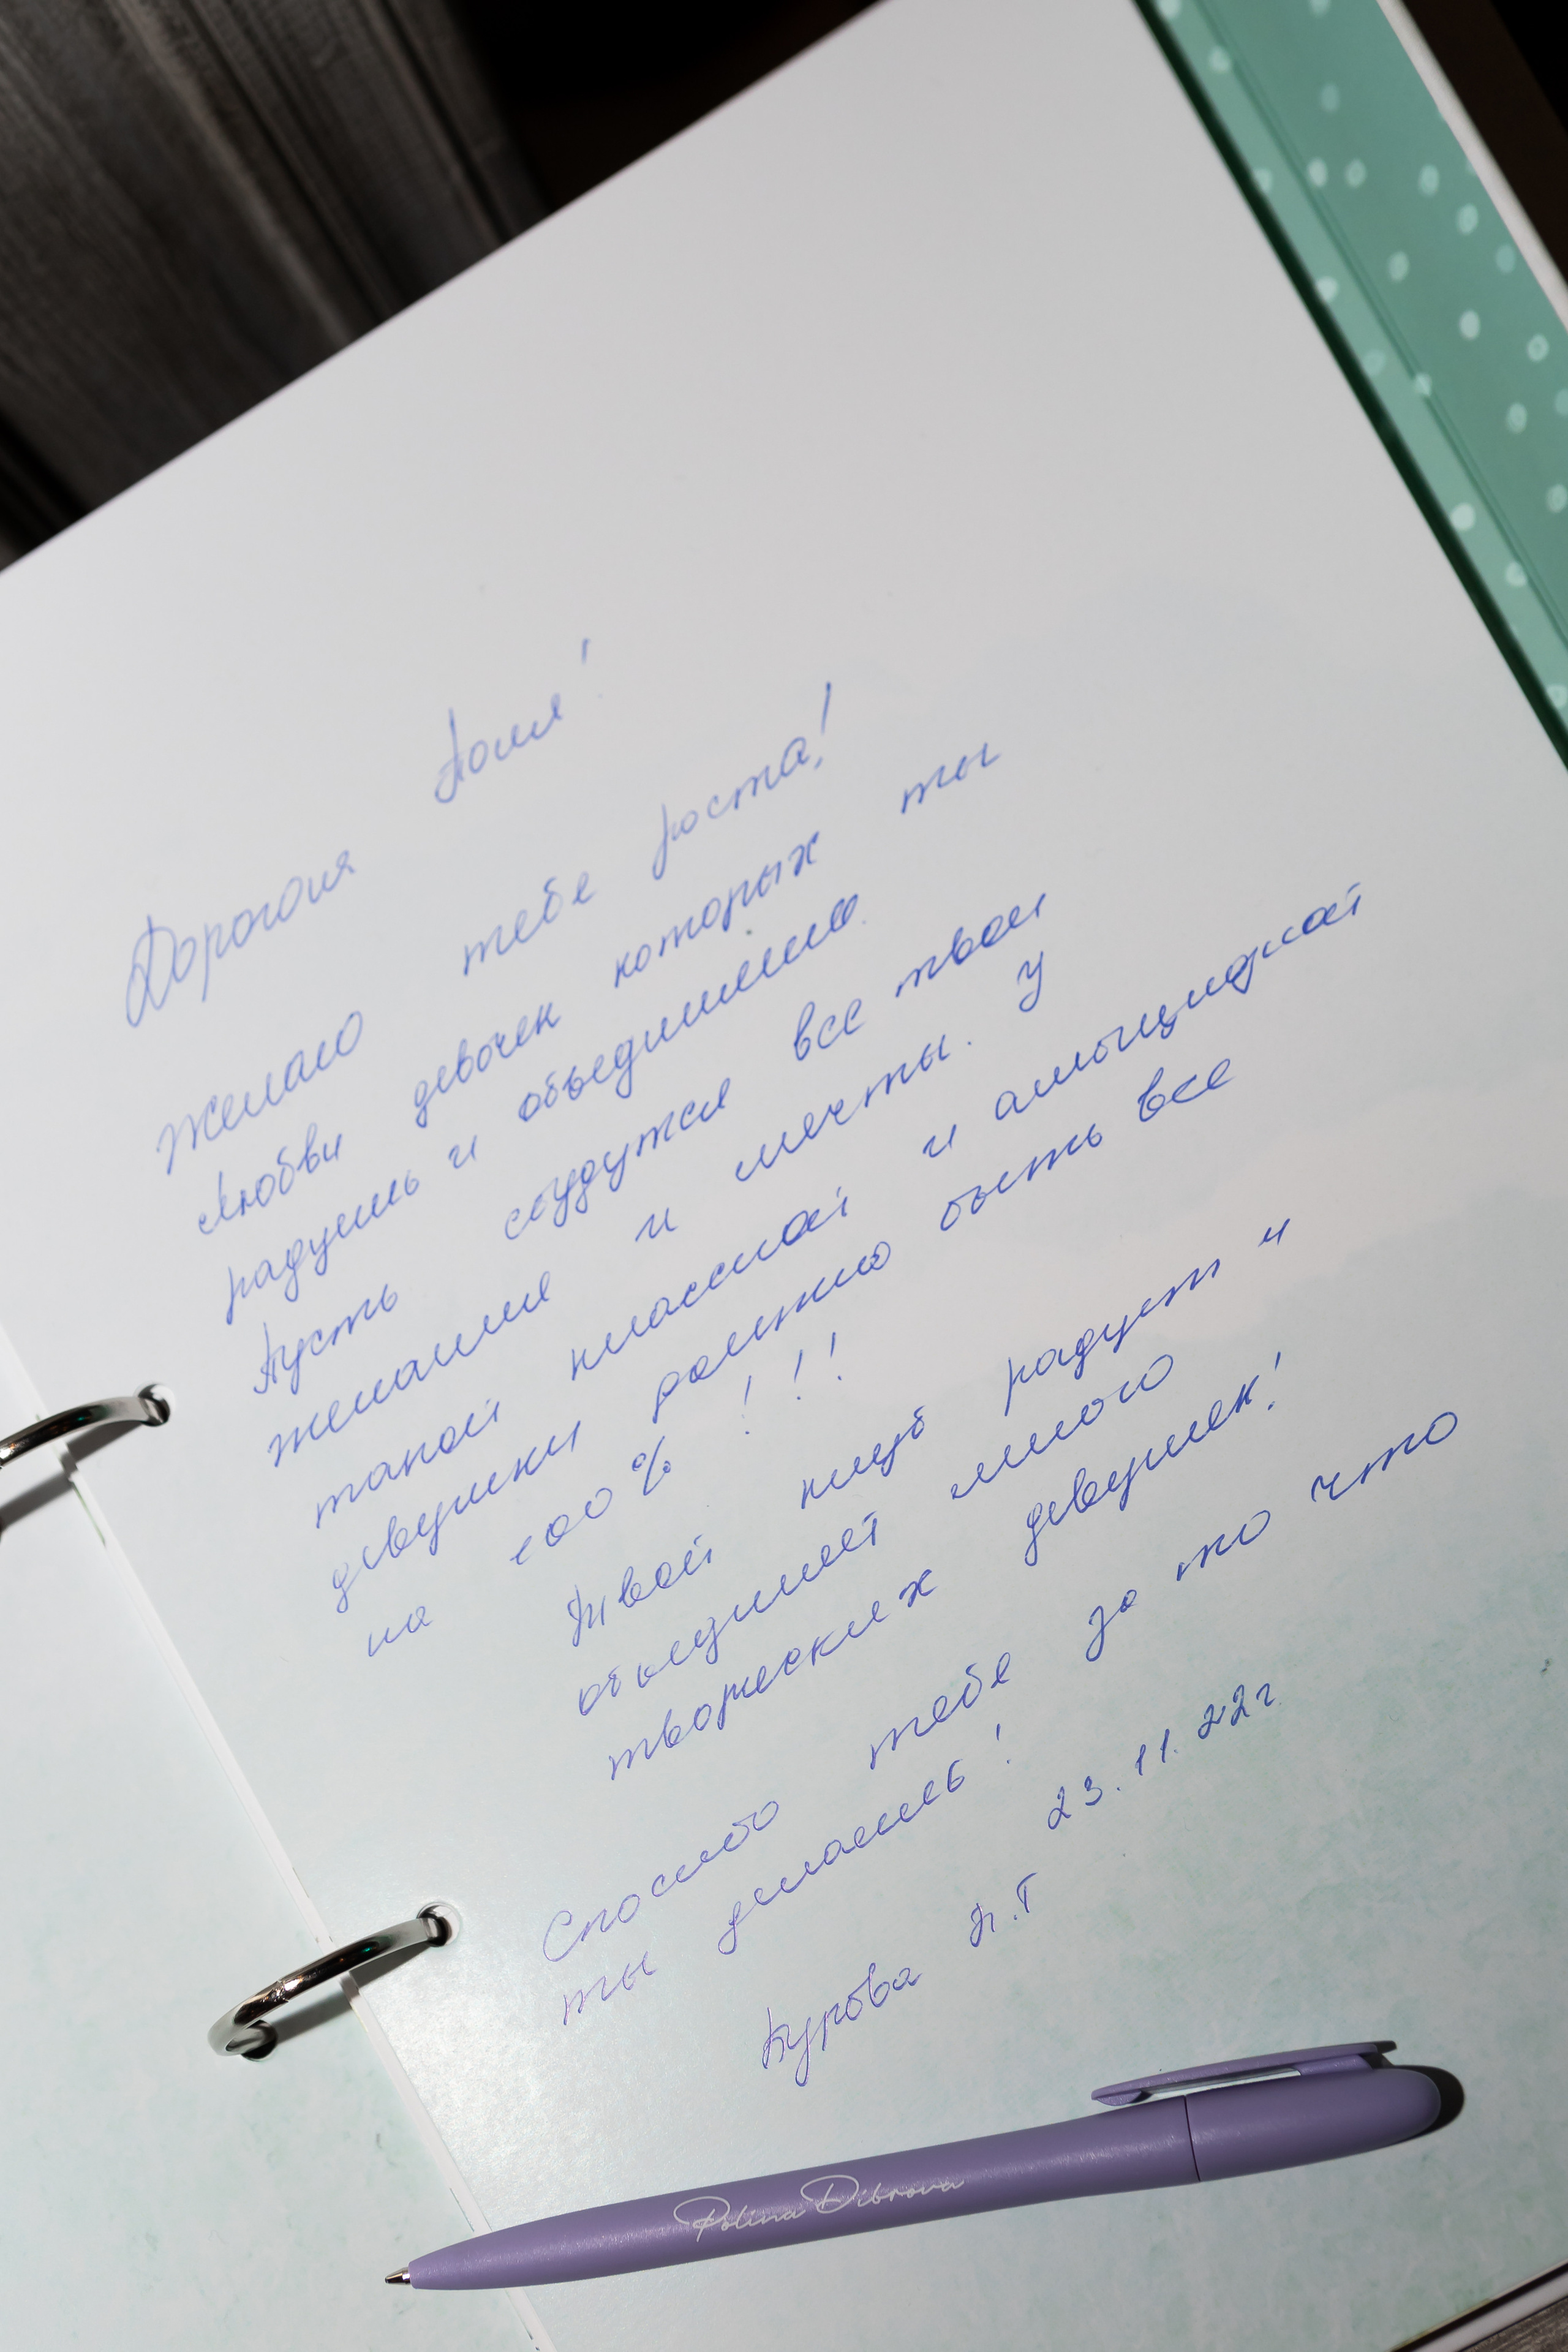 Дорогая Поля!
Желаю тебе роста!
Любви девочек которых ты
радуешь и объединила.
Пусть сбудутся все твои
желания и мечты. У
такой классной и амбициозной
девушки должно быть все
на 100% !!!
Твой клуб радует и
объединяет много
творческих девушек!
Спасибо тебе за то что
ты делаешь!
23.11.22г
Бурова Н.Г
Polina Dibrova